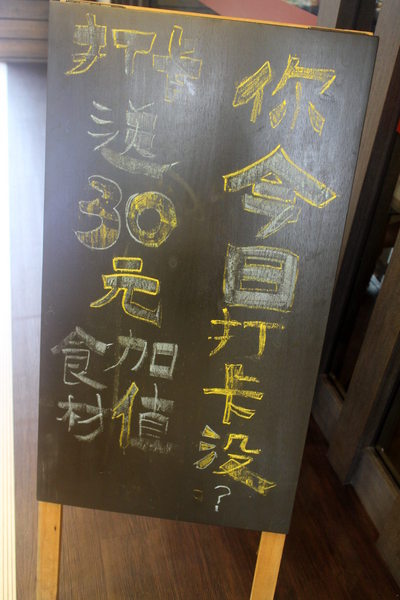 你今日打卡沒?
打卡送30元加值食材